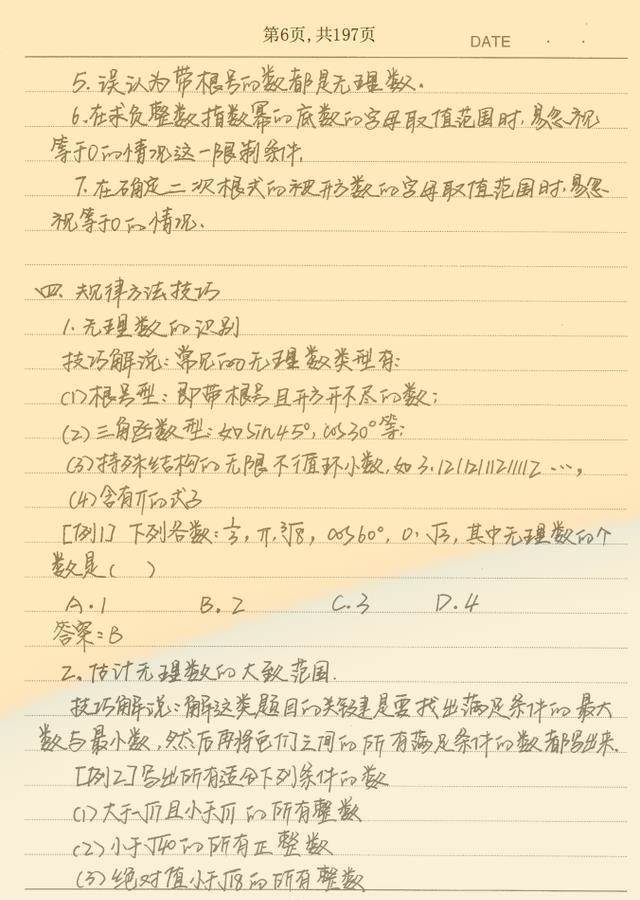 第6页,共197页
DATE · ·
5. 误认为带根号的数都是无理数.
6.在求负整数指数幂的底数的字母取值范围时,易忽视
等于0的情况这一限制条件.
7.在确定二次根式的被开方数的字母取值范围时,易忽
视等于0的情况.
四. 规律方法技巧
1.无理数的识别
技巧解说:常见的无理数类型有:
(1)根号型:即带根号且开方开不尽的数;
(2)三角函数型:如sin45°,cos30°等;
(3)特殊结构的无限不循环小数,如3.12112111211112…,
(4)含有π的式子
[例1] 下列各数:1/3,π,∛8,cos60°,0.√3,其中无理数的个
数是( )
A.1 B.2 C.3 D.4
答案:B
2.估计无理数的大致范围.
技巧解说:解这类题目的关键是要找出满足条件的最大
数与最小数,然后再将它们之间的所有满足条件的数都写出来.
[例2]写出所有适合下列条件的数
(1)大于-√17且小于√11的所有整数
(2)小于√40的所有正整数
(3)绝对值小于√18的所有整数